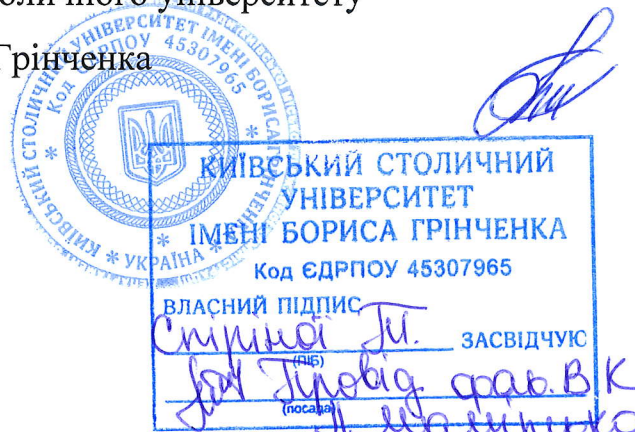 оличного університету
Грінченка
КИЇВСЬКИЙ СТОЛИЧНИЙ УНІВЕРСИТЕТ ІМЕНІ БОРИСА ГРІНЧЕНКА
* УКРАЇНА *
Код ЄДРПОУ 45307965
КИЇВСЬКИЙ СТОЛИЧНИЙ
УНІВЕРСИТЕТ
ІМЕНІ БОРИСА ГРІНЧЕНКА
Код ЄДРПОУ 45307965
ВЛАСНИЙ ПІДПИС
Спіріної Т. ЗАСВІДЧУЮ
(ПІБ)
Провід фах. ВК
(посада)